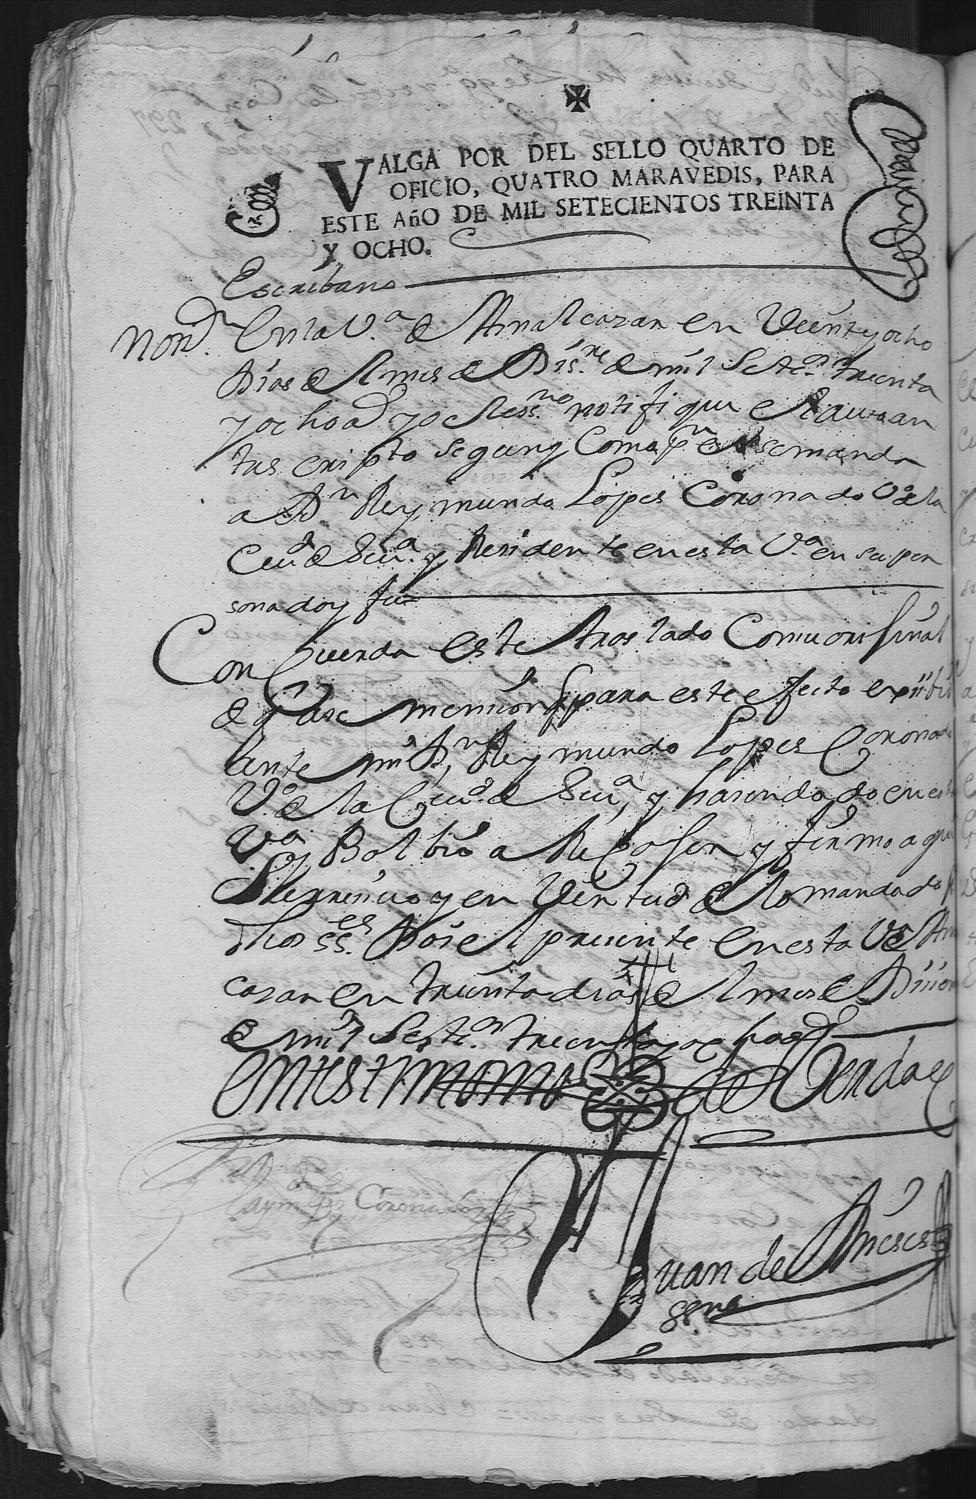 VALGA POR DEL SELLO QUARTO DE
OFICIO, QUATRO MARAVEDIS, PARA
ESTE Año DE MIL SETECIENTOS TREINTA
Y OCHO.
Escribano
Enla V.ª de Asnalcazar en Veinte y ocho
Dias del mes de Dis.re de mill Sett.os treinta
y ocho a.s yo el ess.no notifique el auto an
tescripto segun y Como p.r el se manda
a D.n Reymundo Lopes Coronado V.º de la
Ciu.d de Seu.ª y Residente en esta V.ª en su per
sona doy fee
Concuerda este traslado Con su orisinal
de q se ase mension q para este efecto exsibio
ante mi D.n Reymundo Lopes Coronado
V.º de la Ciu.d de Seu.ª y hasendado en esta
V.ª y Bolbio a Recoser y firmo aqui
su Resiuo y en Vertud de lo mandado p
dhos ss.es Doi el presente en esta V.ª de Asnal
cazar en treinta dias del mes de Disiem
de mill Sett.os treinta y ocho as
en testimonio de Verdad
Raym.do Lpz Coronado
Juan de Meses
ss.no